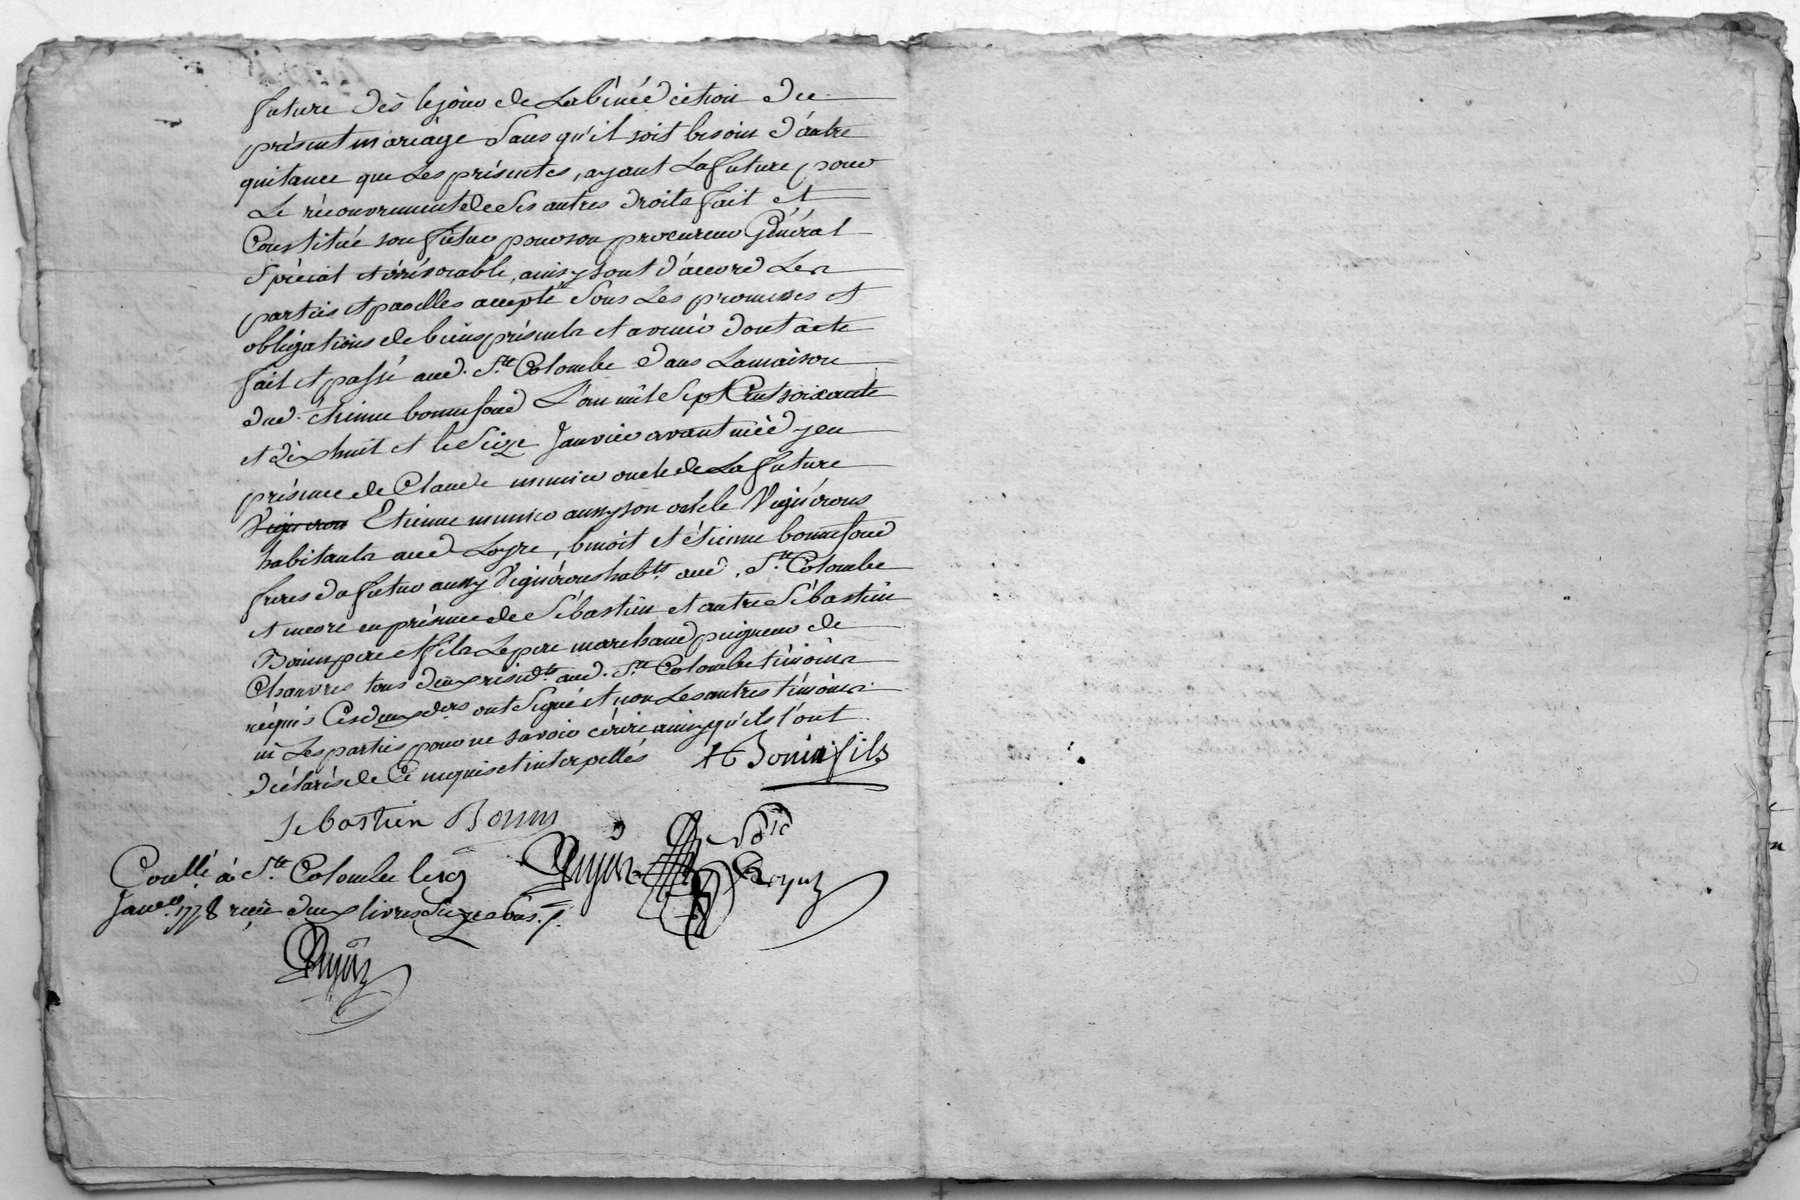 future dès le jour de La bénédiction du
présent mariage Sans qu'il soit besoin d'autre
quitance que Les présentes, ayant La future pour
Le récouvrement de Ses autres droits fait et
Constitué son futur pour son procureur Général
Spécial et irrévocable, ainsy sont d'accord Les
parties et par elles accepté Sous Les promesses et
obligations de biens présents et avenir dont acte
fait et passé aud. Ste Colombe dans La maison
dud. étienne bonnefond L'an mil Sept Cent soixante
et dix huit et le Seize Janvier avant midy en
présence de Claude munier oncle de La future
Vigneron Etienne munier aussy son oncle Vignérons
habitants aud Loyre, benoit et étienne bonnefond
freres du futur aussy Vignérons habts. aud. Ste Colombe
et encore en présence de Sébastien et autre Sébastien
Bonin pere et fils Le pere marchand peigneur de
Chanvres tous deux résidts. aud. Ste Colombe témoins
réquis Ces deux ders ont Signé et non Les autres témoins
ni Les parties pour ne savoir écrire ainsy qu'ils l'ont
déclaré de Ce enquis et interpellés SBonin fils
Sebastien Bonin
Con.llé à Ste Colombe le 19
Janver. 1778 reçu deux livres Seize sous